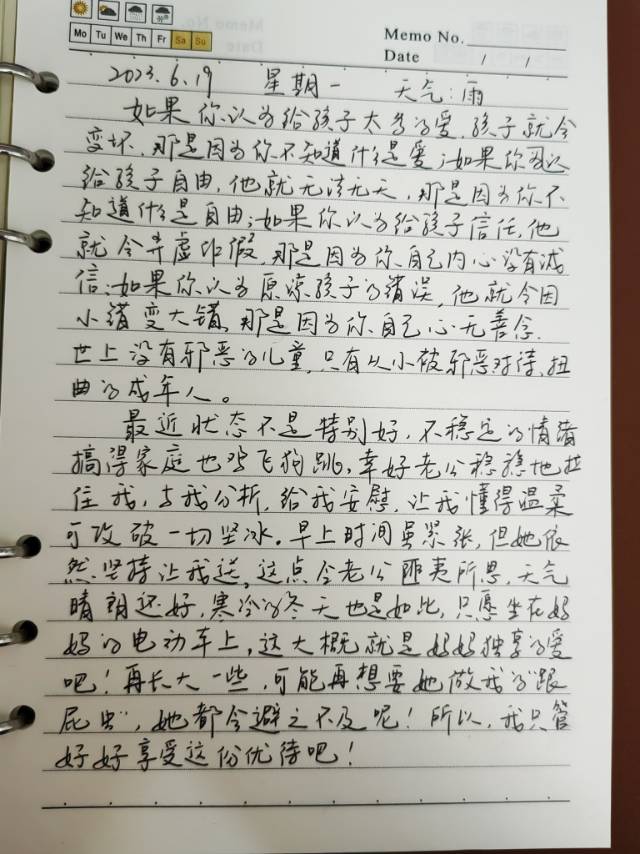 Mo Tu We Th Fr Sa Su
Memo No.
Date / /
2023.6.19 星期一 天气:雨
如果你认为给孩子太多的爱,孩子就会
变坏,那是因为你不知道什么是爱;如果你认
给孩子自由,他就无法无天,那是因为你不
知道什么是自由;如果你认为给孩子信任,他
就会弄虚作假,那是因为你自己内心没有诚
信;如果你认为原谅孩子的错误,他就会因
小错变大错,那是因为你自己心无善念.
世上没有邪恶的儿童,只有从小被邪恶对待、扭
曲的成年人。
最近状态不是特别好,不稳定的情绪
搞得家庭也鸡飞狗跳,幸好老公稳稳地拉
住我,与我分析,给我安慰,让我懂得温柔
可攻破一切坚冰。早上时间虽紧张,但她依
然坚持让我送,这点令老公匪夷所思,天气
晴朗还好,寒冷的冬天也是如此,只愿坐在妈
妈的电动车上,这大概就是妈妈独享的爱
吧!再长大一些,可能再想要她做我的"跟
屁虫",她都会避之不及呢!所以,我只管
好好享受这份优待吧!